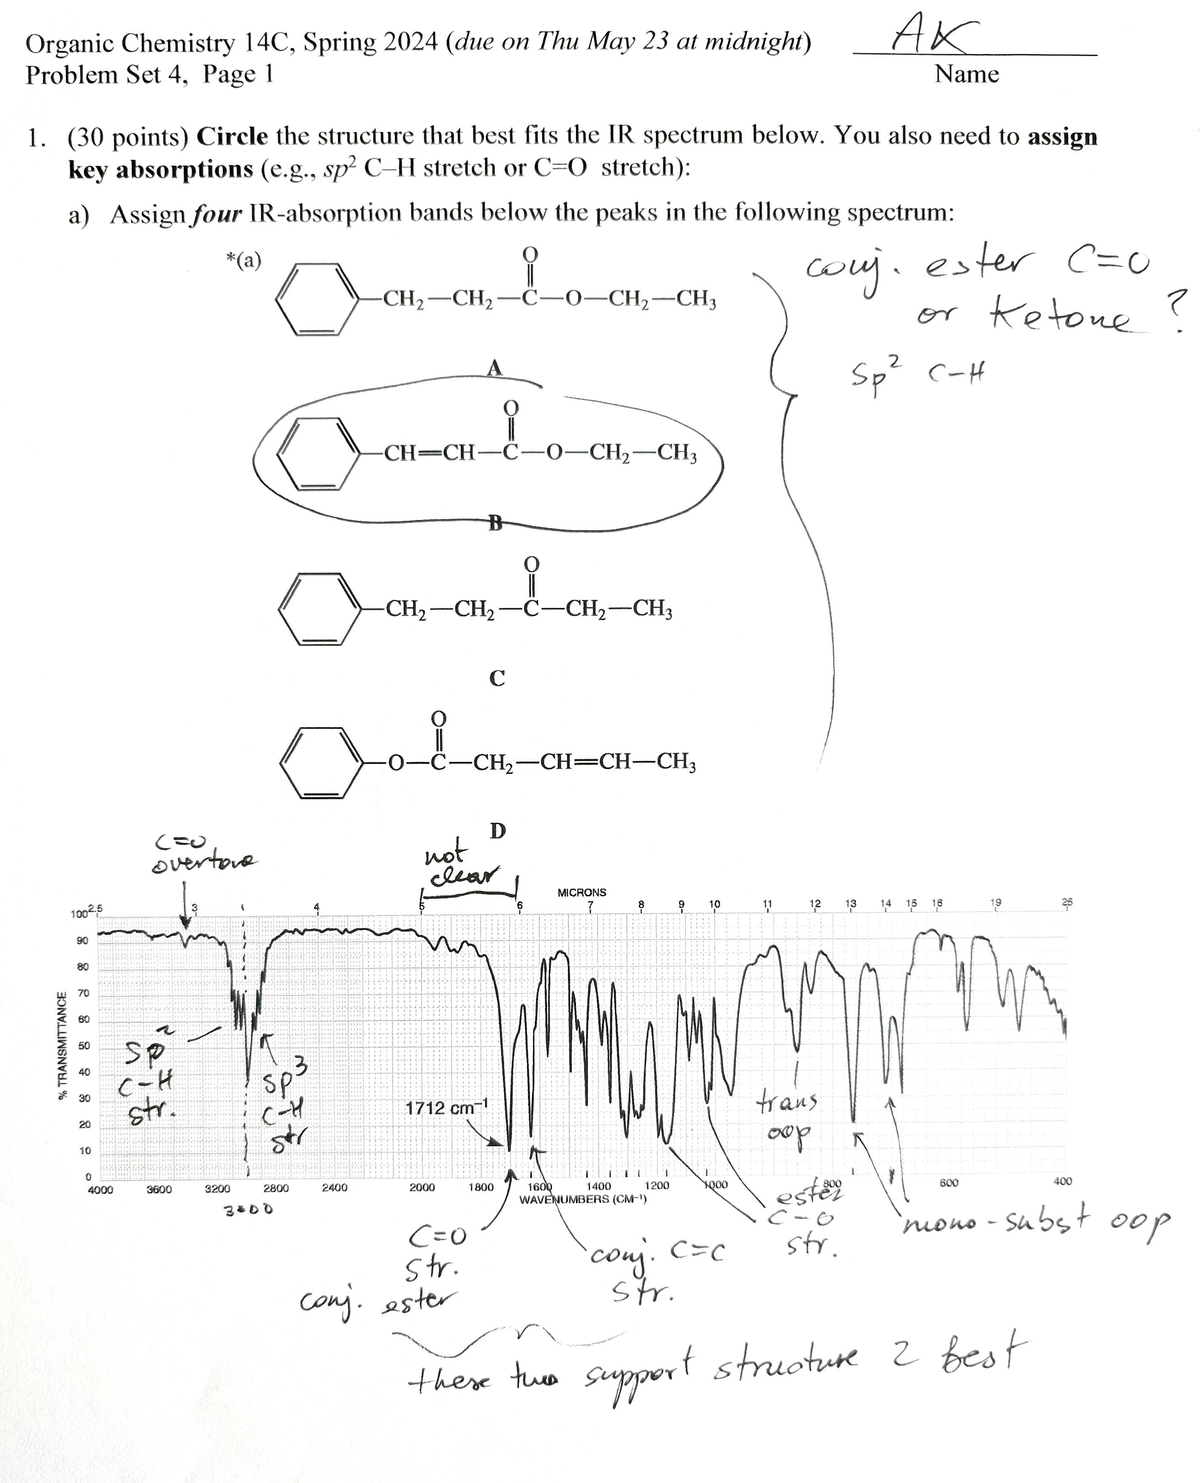 Organic Chemistry 14C, Spring 2024 (due on Thu May 23 at midnight)
AK
Problem Set 4, Page 1
Name
1. (30 points) Circle the structure that best fits the IR spectrum below. You also need to assign
key absorptions (e.g., sp² C–H stretch or C=O stretch):
a) Assign four IR-absorption bands below the peaks in the following spectrum:
*(a)
O
CH₂—CH₂—C—O—CH₂—CH₃
A
conj. ester C=O
or ketone ?
sp² C-H
O
CH=CH—C—O—CH₂—CH₃
B
O
CH₂—CH₂—C—CH₂—CH₃
C
O
O—C—CH₂—CH=CH—CH₃
D
C=O
overtone
not
clear
MICRONS
2.5 3 4 5 6 7 8 9 10 11 12 13 14 15 16 19 25
100
90
80
70
60
50
40
30
20
10
0
% TRANSMITTANCE
sp²
C-H
str.
sp³
C-H
str
1712 cm⁻¹
trans
oop
4000 3600 3200 2800 2400 2000 1800 1600 1400 1200 1000 800 600 400
WAVENUMBERS (CM⁻¹)
3000
C=O
str.
conj. ester
conj. C=C
str.
ester
C-O
str.
mono-subst oop
these two support structure 2 best